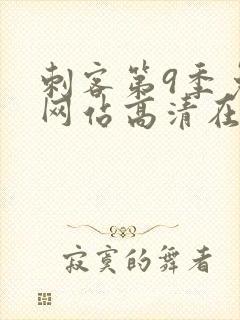 刺客第9季
网估高清在
寂寞的舞者